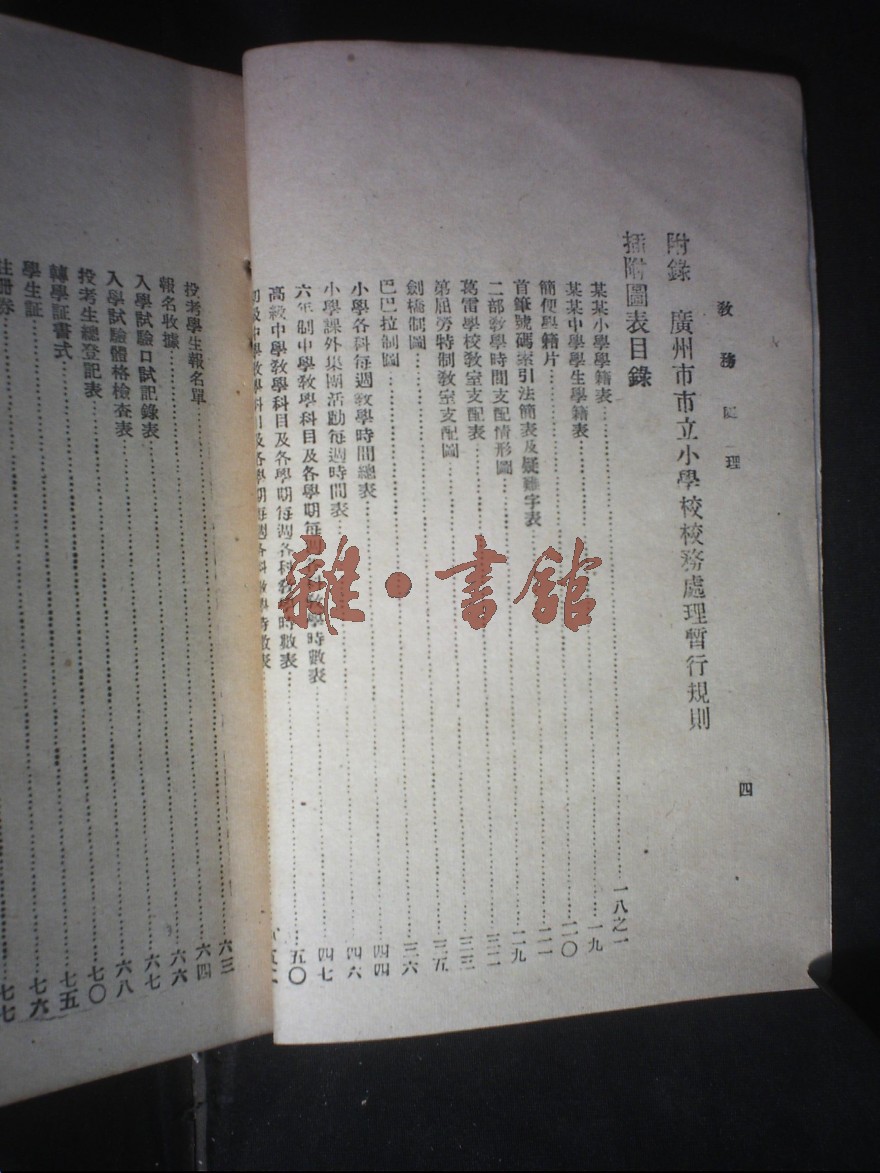 教務處理
四
附錄 廣州市市立小學校校務處理暫行規則
插附圖表目錄
某某小學學籍表……一八之一
某某中學學生學籍表……一九
簡便學籍片……二〇
首筆號碼索引法簡表及疑難字表……二二
二部教學時間支配情形圖……二九
葛雷學校教室支配表……三二
第屈勞特制教室支配圖……三三
劍橋制圖……三五
巴巴拉制圖……三六
小學各科每週教學時間總表……四四
小學課外集團活動每週時間表……四六
六年制中學教學科目及各學期每週各科教學時數表……四七
高級中學教學科目及各學期每週各科教學時數表……五〇
初級中學教學科目及各學期每週各科教學時數表……五二
投考學生報名單……六三
報名收據……六四
入學試驗口試記錄表……六六
入學試驗體格檢查表……六七
投考生總登記表……六八
轉學証書式……七〇
學生証……七五
註冊券……七六
七七
雜·書館